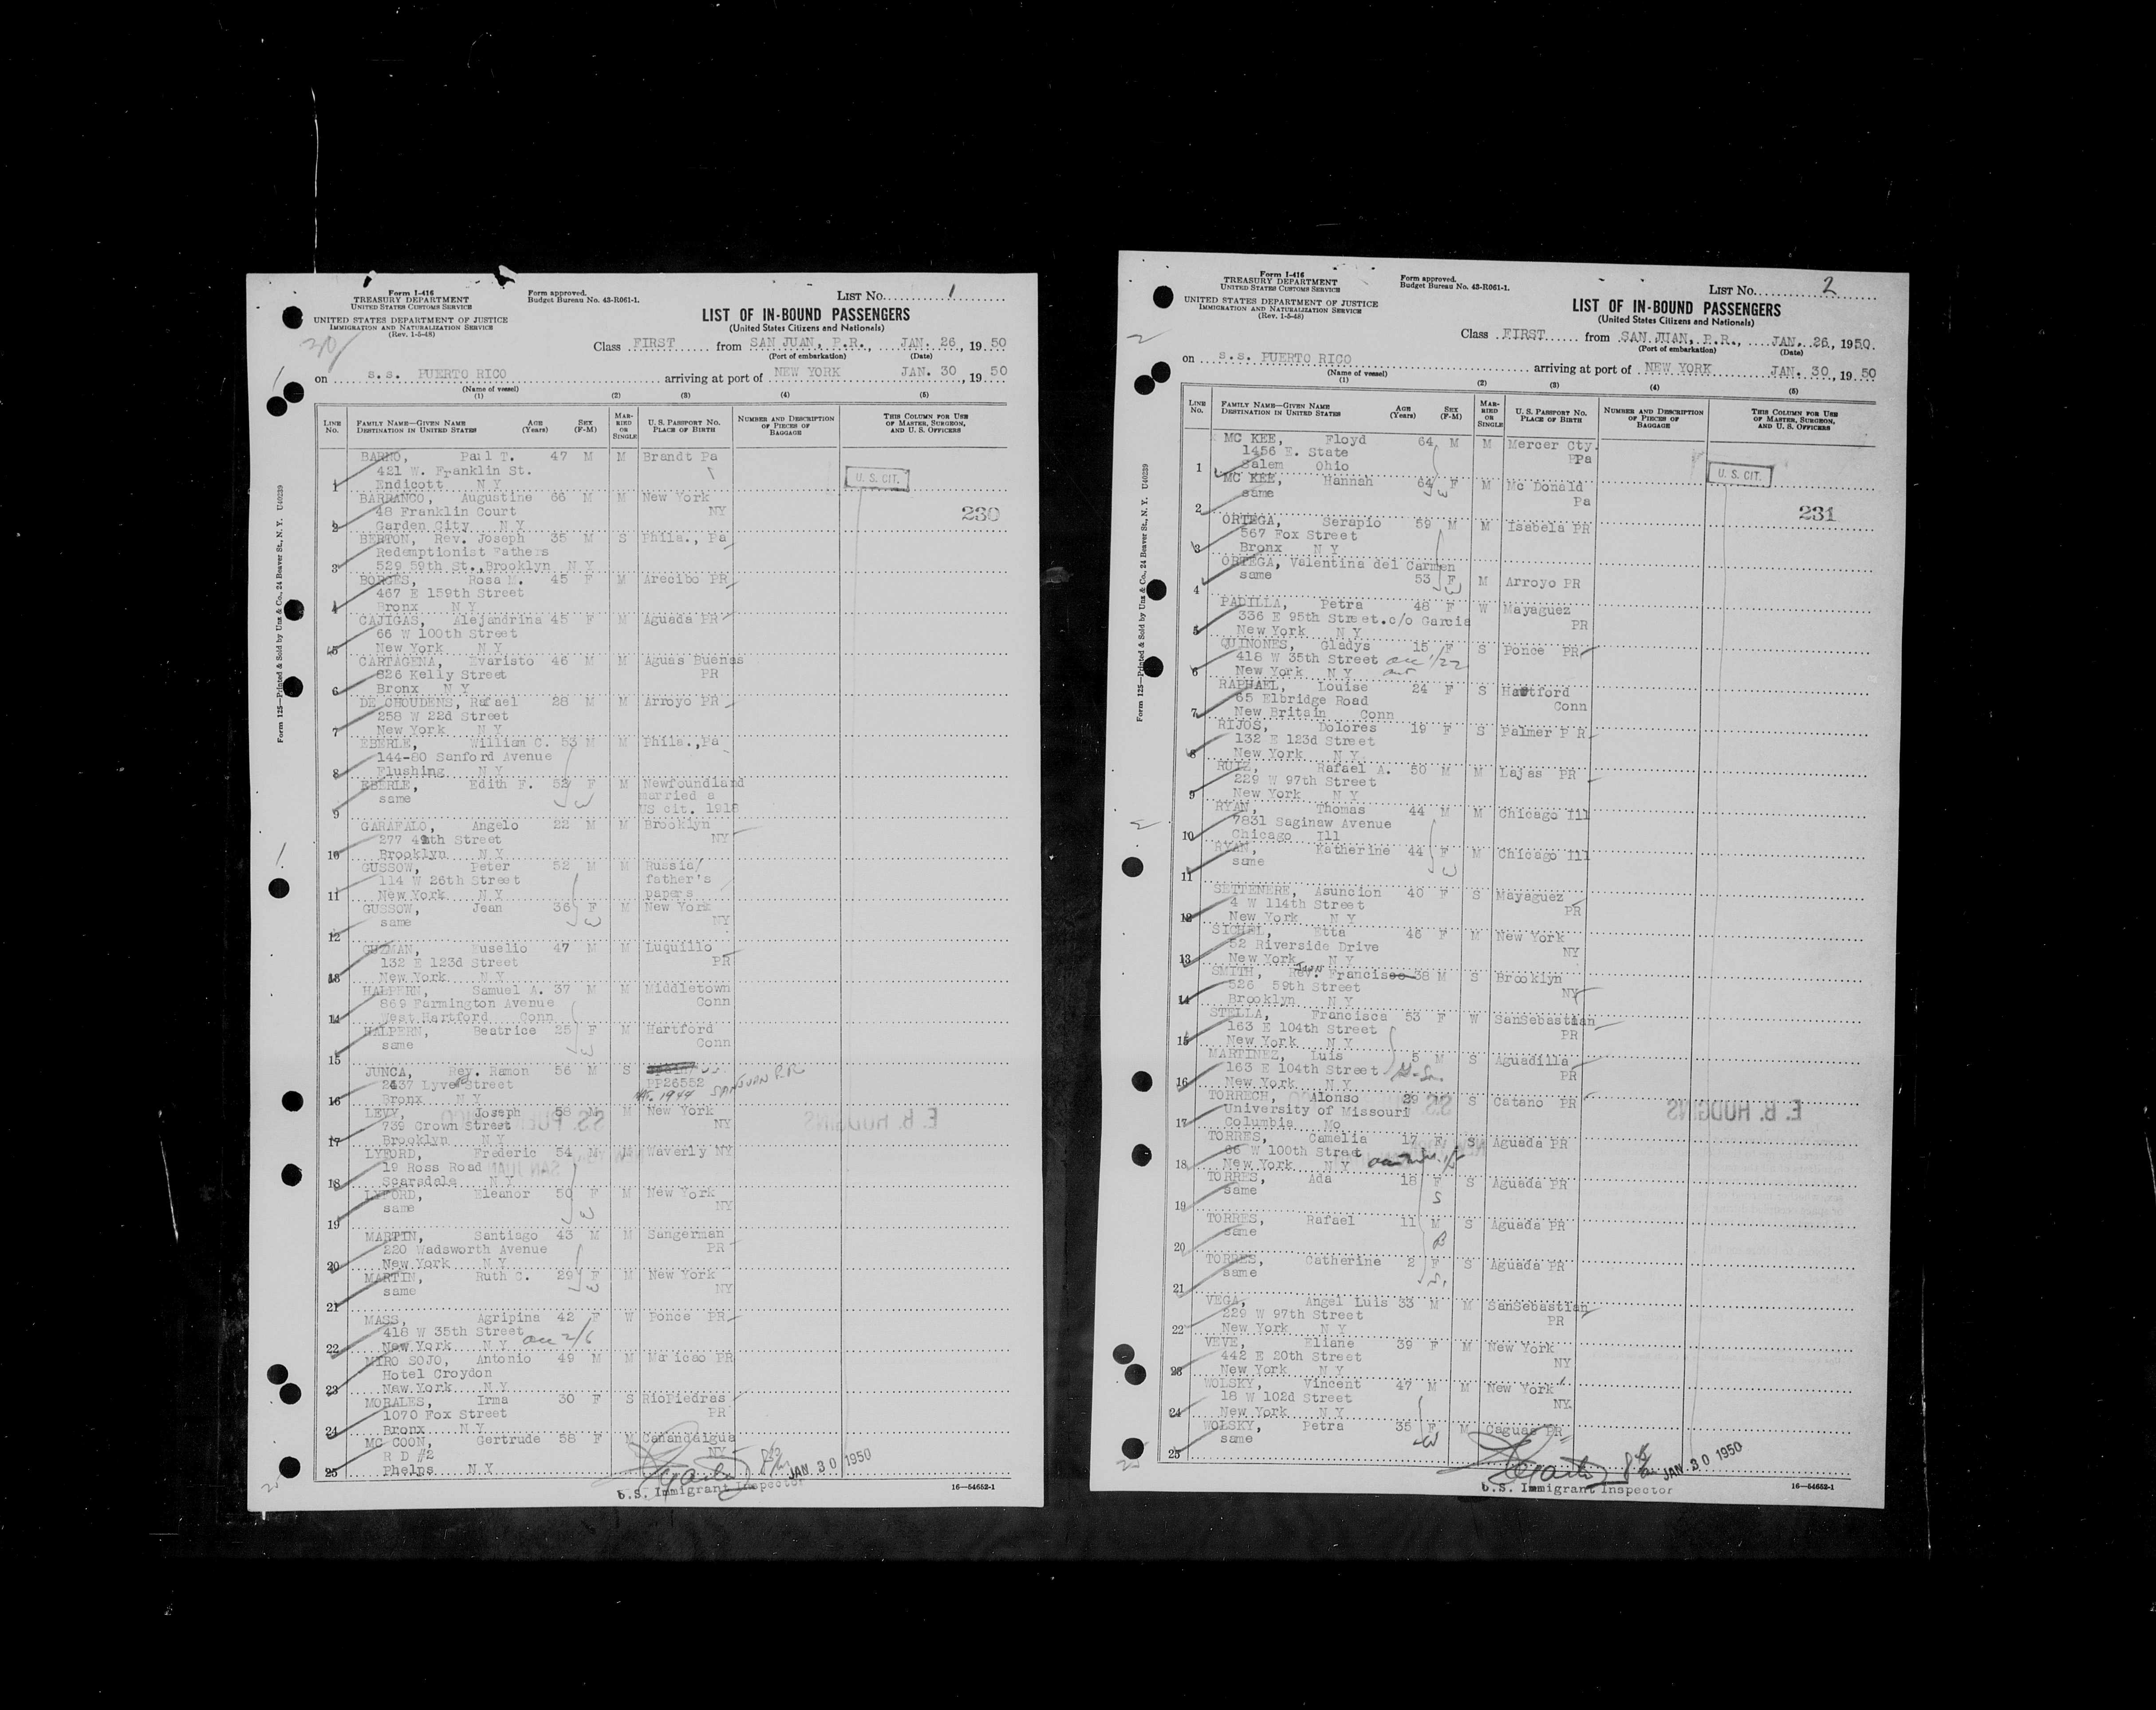 Form I-416
TREASURY DEPARTMENT
UNITED STATES CUSTOMS SERVICE
UNITED STATES DEPARTMENT OF JUSTICE
IMMIGRATION AND NATURALIZATION SERVICE
(Rev. 1-5-48)
Form approved.
Budget Bureau No. 43-R061-1.
LIST No. 1
LIST OF IN-BOUND PASSENGERS
(United States Citizens and Nationals)
Class FIRST from SAN JUAN, P.R., JAN. 26, 1950
(Port of embarkation) (Date)
on s.s. PUERTO RICO arriving at port of NEW YORK JAN. 30, 1950
(Name of vessel)
(1) (2) (3) (4) (5)
LINE No. FAMILY NAME—GIVEN NAME DESTINATION IN UNITED STATES AGE (Years) SEX (F-M) MARRIED OR SINGLE U. S. PASSPORT NO. PLACE OF BIRTH NUMBER AND DESCRIPTION OF PIECES OF BAGGAGE THIS COLUMN FOR USE OF MASTER, SURGEON, AND U. S. OFFICERS
Form 125—Printed & Sold by Unz & Co., 24 Beaver St., N. Y. U40239
Paul T. 47 M M Brandt Pa
421 W. Franklin St.
1 Endicott N Y
U. S. CIT.
BARRANCO, Augustine 66 M M New York
48 Franklin Court NY
2 Garden City N Y
230
BERTON, Rev. Joseph 35 M S Phila., Pa
Redemptionist Fathers
3 529 59th St., Brooklyn N Y
BORGES, Rosa M. 45 F M Arecibo PR
467 E 159th Street
4 Bronx N Y
CAJIGAS, Alejandrina 45 F M Aguada PR
66 W 100th Street
5 New York N Y
CARTAGENA, Evaristo 46 M M Aguas Buenas
826 Kelly Street PR
6 Bronx N Y
DE CHOUDENS, Rafael 28 M M Arroyo PR
258 W 22d Street
7 New York N Y
EBERLE, William C. 53 M M Phila., Pa
144-80 Sanford Avenue
8 Flushing N Y
EBERLE, Edith F. 52 F M Newfoundland
same married a
9 US cit. 1918
GARAFALO, Angelo 22 M M Brooklyn
277 th Street NY
10 Brooklyn N Y
GUSSOW, Peter 52 M M Russia/
114 W 26th Street father's
11 New York N Y papers
GUSSOW, Jean 36 F M New York
same NY
12
GUZMAN, Euselio 47 M M Luquillo
132 E 123d Street PR
13 New York N Y
HALPERN, Samuel A. 37 M M Middletown
869 Farmington Avenue Conn
14 West Hartford Conn
HALPERN, Beatrice 25 F M Hartford
same Conn
15
JUNCA, Rev. Ramon 56 M S
Street PP26552 SAN JUAN P.R.
16 Bronx N Y 1944
LEVY, Joseph 58 M M New York
739 Crown Street NY
17 Brooklyn N Y
E. B. HUDGINS
LYFORD, Frederic 54 M M Waverly NY
19 Ross Road
18 Scarsdale N Y
LYFORD, Eleanor 50 F M New York
same NY
19
MARTIN, Santiago 43 M M Sangerman
220 Wadsworth Avenue PR
20 New York N Y
MARTIN, Ruth C. 29 F M New York
same NY
21
MASS, Agripina 42 F W Ponce PR
418 W 35th Street
22 New York N Y acc 2/6
MIRO SOJO, Antonio 49 M M Maricao PR
Hotel Croydon
23 New York N Y
MORALES, Irma 30 F S RioPiedras
1070 Fox Street PR
24 Bronx N Y
MC COON, Gertrude 58 F M Canandaigua
R D #2 NY
25 Phelps N Y
JAN 30 1950
U.S. Immigrant Inspector
16—54652-1
Form I-416
TREASURY DEPARTMENT
UNITED STATES CUSTOMS SERVICE
UNITED STATES DEPARTMENT OF JUSTICE
IMMIGRATION AND NATURALIZATION SERVICE
(Rev. 1-5-48)
Form approved.
Budget Bureau No. 43-R061-1.
LIST No. 2
LIST OF IN-BOUND PASSENGERS
(United States Citizens and Nationals)
Class FIRST from SAN JUAN, P.R., JAN. 26, 1950.
(Port of embarkation) (Date)
on s.s. PUERTO RICO arriving at port of NEW YORK JAN. 30, 1950
(Name of vessel)
(1) (2) (3) (4) (5)
LINE No. FAMILY NAME—GIVEN NAME DESTINATION IN UNITED STATES AGE (Years) SEX (F-M) MARRIED OR SINGLE U. S. PASSPORT NO. PLACE OF BIRTH NUMBER AND DESCRIPTION OF PIECES OF BAGGAGE THIS COLUMN FOR USE OF MASTER, SURGEON, AND U. S. OFFICERS
Form 125—Printed & Sold by Unz & Co., 24 Beaver St., N. Y. U40239
MC KEE, Floyd 64 M M Mercer Cty.
1456 E. State Pa
1 Salem Ohio
U. S. CIT.
MC KEE, Hannah 64 F M Mc Donald
same Pa
2
231
ORTEGA, Serapio 59 M M Isabela PR
567 Fox Street
3 Bronx N Y
ORTEGA, Valentina del Carmen
same 53 F M Arroyo PR
4
PADILLA, Petra 48 F W Mayaguez
336 E 95th Street.c/o Garcia PR
5 New York N Y
QUINONES, Gladys 15 F S Ponce PR
418 W 35th Street acc 1/22
6 New York N Y
RAPHAEL, Louise 24 F S Hartford
65 Elbridge Road Conn
7 New Britain Conn
RIJOS, Dolores 19 F S Palmer P R
132 E 123d Street
8 New York N Y
RUIZ, Rafael A. 50 M M Lajas PR
229 W 97th Street
9 New York N Y
RYAN, Thomas 44 M M Chicago Ill
7831 Saginaw Avenue
10 Chicago Ill
RYAN, Katherine 44 F M Chicago Ill
same
11
SETTENERE, Asuncion 40 F S Mayaguez
4 W 114th Street PR
12 New York N Y
SICHEL, Etta 46 F M New York
52 Riverside Drive NY
13 New York N Y
SMITH, Rev. Francis 38 M S Brooklyn
526 59th Street NY
14 Brooklyn N Y
STELLA, Francisca 53 F W SanSebastian
163 E 104th Street PR
15 New York N Y
MARTINEZ, Luis 5 M S Aguadilla
163 E 104th Street PR
16 New York N Y
TORRECH, Alonso 29 M S Catano PR
University of Missouri
17 Columbia Mo
E. B. HUDGINS
TORRES, Camelia 17 F S Aguada PR
66 W 100th Street
18 New York N Y
TORRES, Ada 18 F S Aguada PR
same
19
TORRES, Rafael 11 M S Aguada PR
same
20
TORRES, Catherine 2 F S Aguada PR
same
21
VEGA, Angel Luis 33 M M SanSebastian
229 W 97th Street PR
22 New York N Y
VEVE, Eliane 39 F M New York
442 E 20th Street NY
23 New York N Y
WOLSKY, Vincent 47 M M New York
18 W 102d Street NY.
24 New York N Y
WOLSKY, Petra 35 F M Caguas PR
same
25
JAN 30 1950
U.S. Immigrant Inspector
16—54652-1